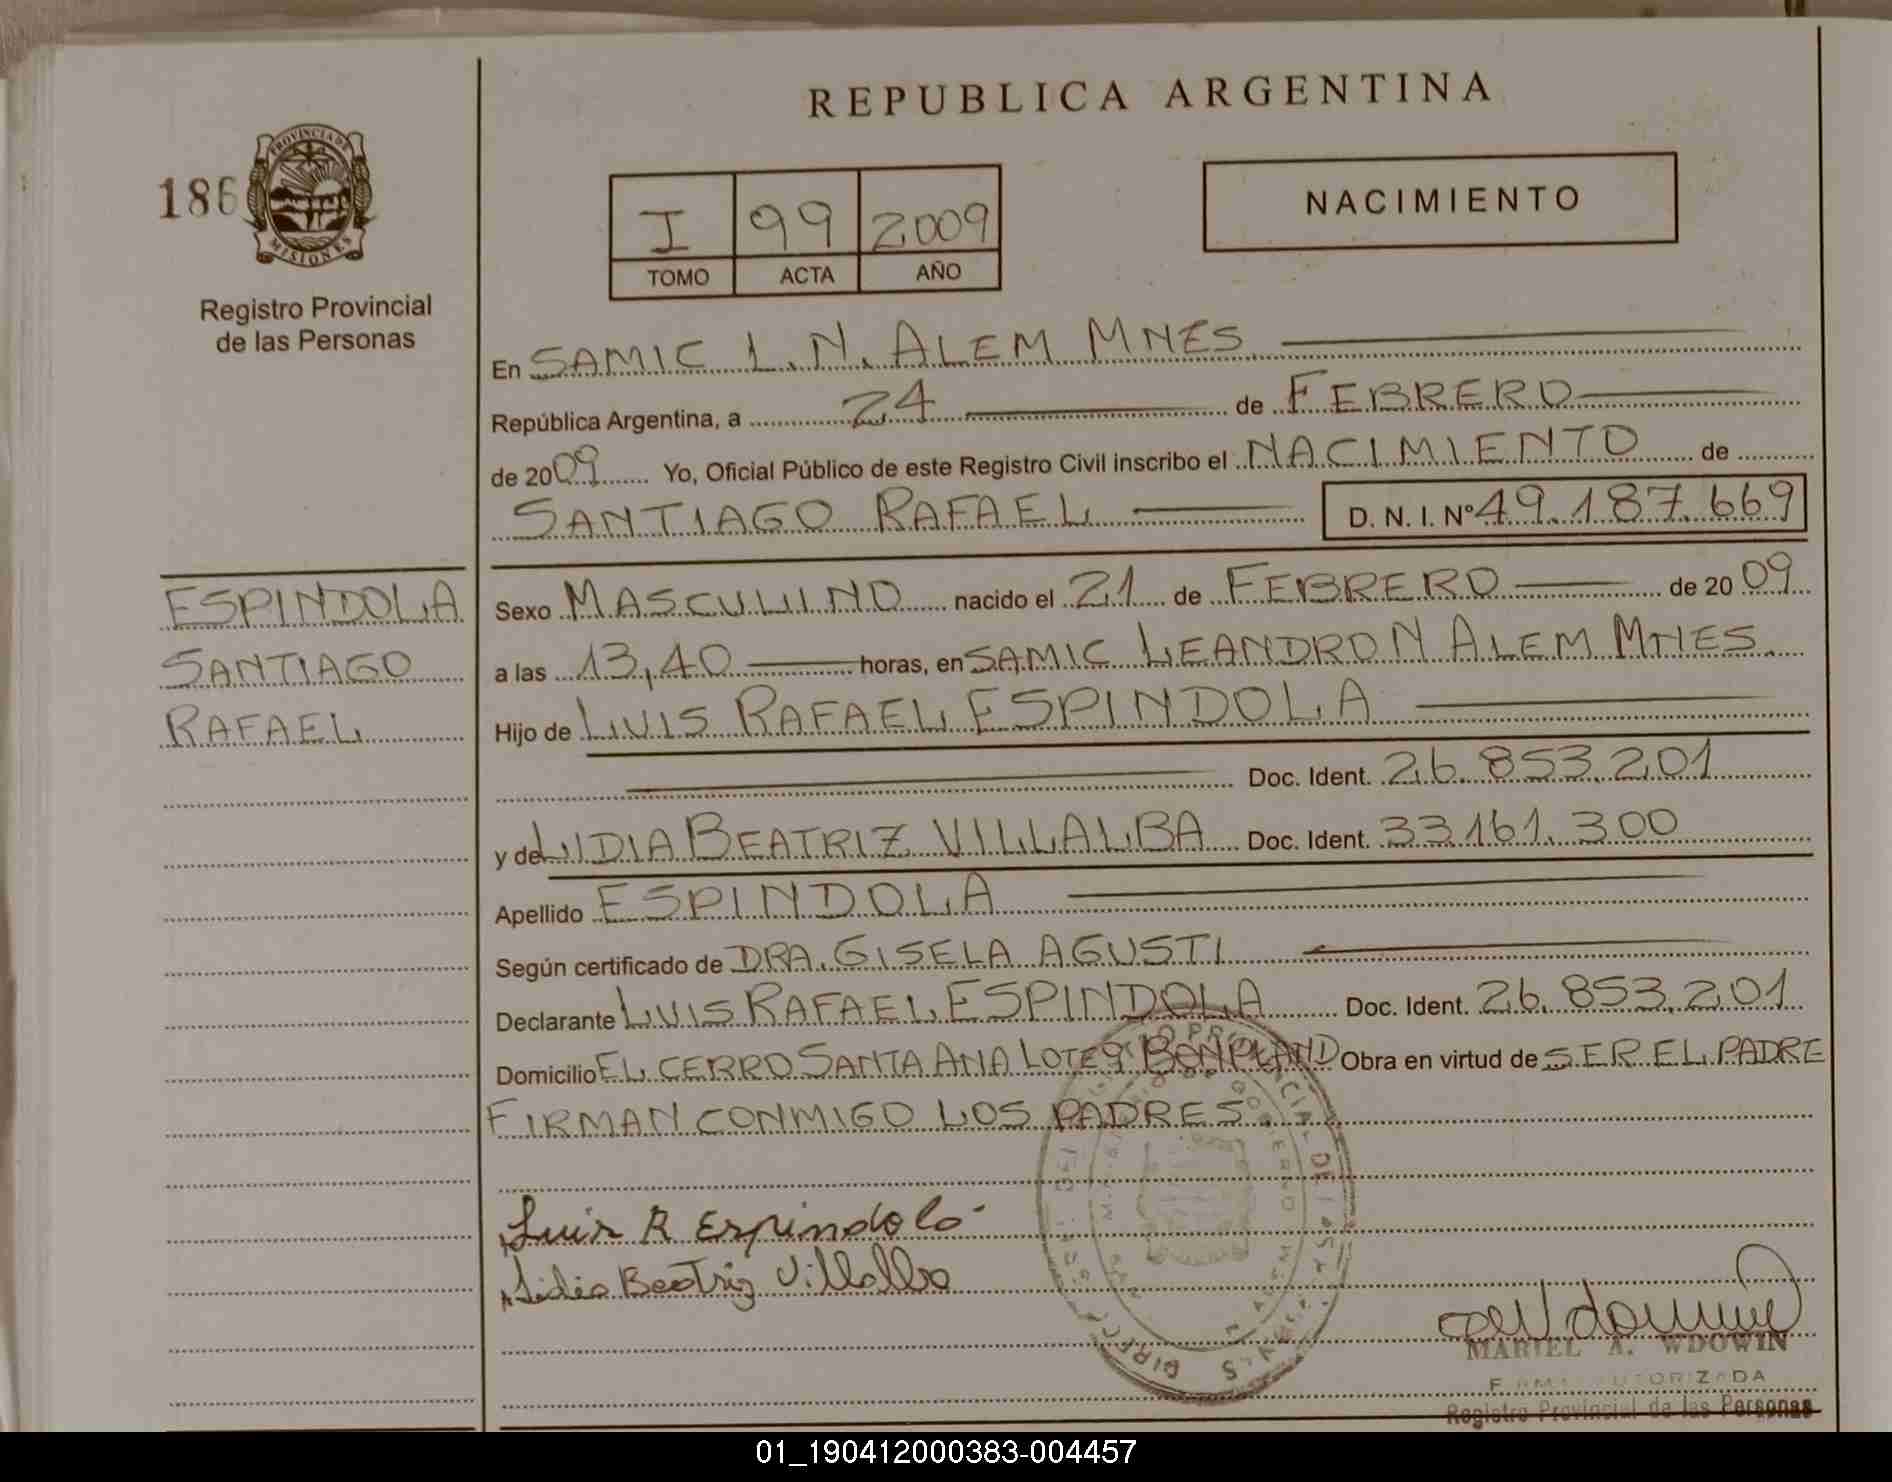 REPUBLICA ARGENTINA
186
PROVINCIA DE
MISIONES
Registro Provincial
de las Personas
I 99 2009
TOMO ACTA AÑO
NACIMIENTO
En SAMIC L.N. ALEM MNES
República Argentina, a 24 de FEBRERO
de 2009 Yo, Oficial Público de este Registro Civil inscribo el NACIMIENTO de
SANTIAGO RAFAEL D. N. I. Nº 49.187.669
ESPINDOLA
SANTIAGO
RAFAEL
Sexo MASCULINO nacido el 21 de FEBRERO de 2009
a las 13,40 horas, en SAMIC LEANDRO N ALEM MNES.
Hijo de LUIS RAFAEL ESPINDOLA
Doc. Ident. 26.853.201
y de LIDIA BEATRIZ VILLALBA Doc. Ident. 33.161.300
Apellido ESPINDOLA
Según certificado de DRA. GISELA AGUSTI
Declarante LUIS RAFAEL ESPINDOLA Doc. Ident. 26.853.201
Domicilio EL CERRO SANTA ANA LOTE 9 BONPLAND Obra en virtud de SER EL PADRE
FIRMAN CONMIGO LOS PADRES
Luis R Espindola
Lidia Beatriz Villalba
MARIEL A. WDOWIN
FIRMA AUTORIZADA
Registro Provincial de las Personas
01_190412000383-004457